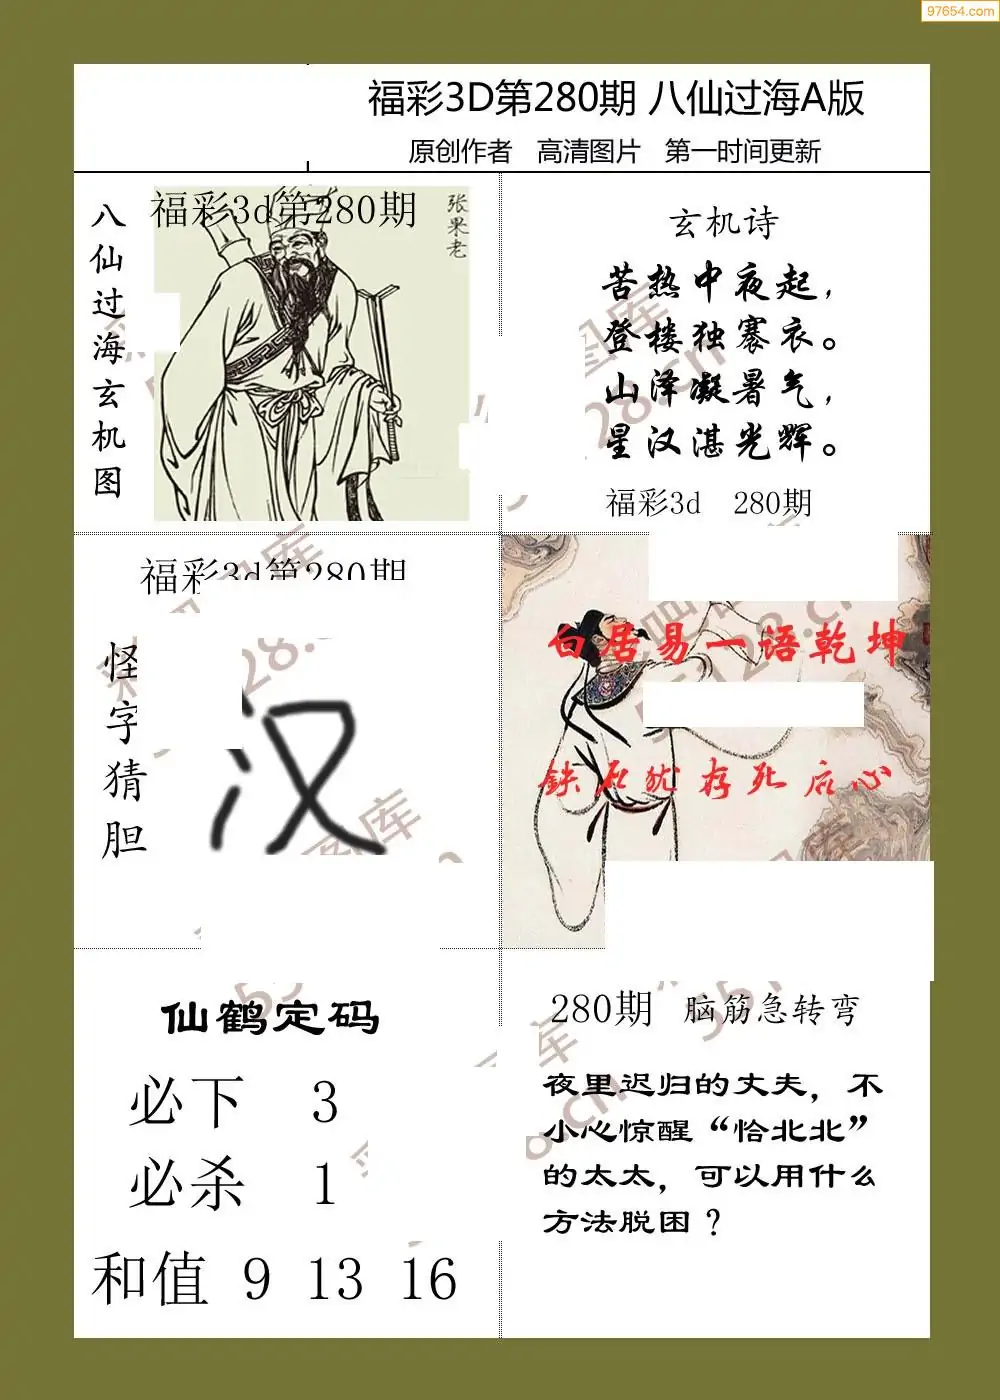 97654.com
福彩3D第280期 八仙过海A版
原创作者 高清图片 第一时间更新
八仙过海玄机图
福彩3d第280期
张果老
玄机诗
苦热中夜起，
登楼独褰衣。
山泽凝暑气，
星汉湛光辉。
福彩3d 280期
福彩3d第280期
怪字猜胆
汉
白居易一语乾坤
鉄石犹存死后心
仙鹤定码
必下 3
必杀 1
和值 9 13 16
280期 脑筋急转弯
夜里迟归的丈夫，不
小心惊醒“恰北北”
的太太，可以用什么
方法脱困？